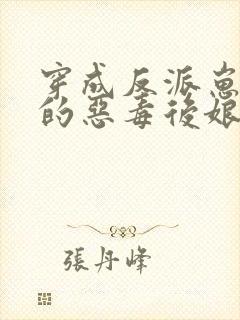 穿成反派崽
的惡毒後娘
張丹峰